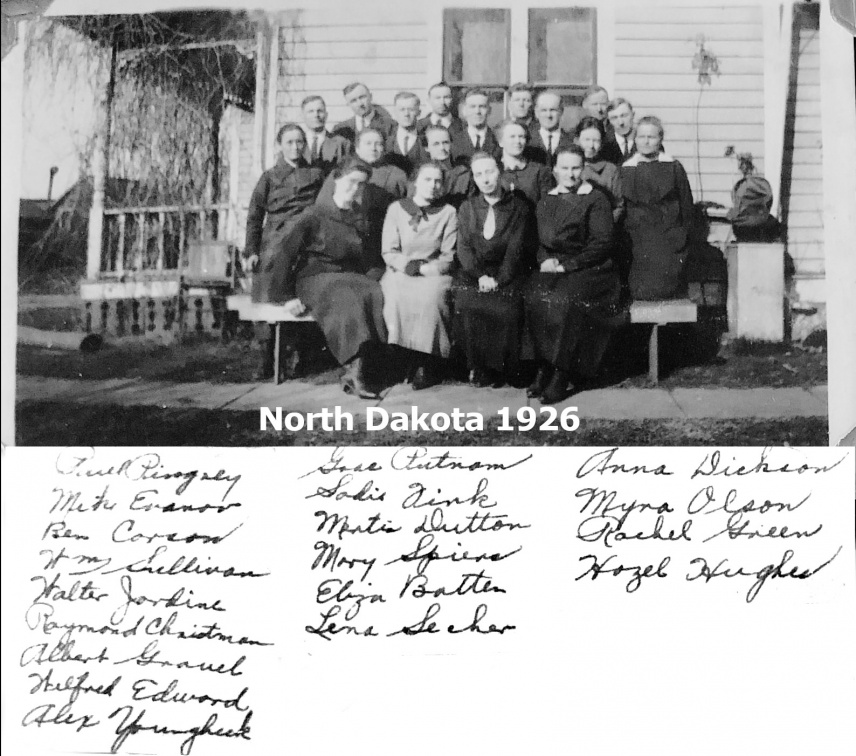 North Dakota 1926
Mike Evanov
Ben Carson
Wm Sullivan
Walter Jardine
Raymond Christman
Albert Gravel
Wilfred Edward
Alex
Putnam
Sadie Fink
Myrtis Dutton
Mary Spiers
Eliza Batten
Lena Secher
Anna Dickson
Myra Olson
Rachel Green
Hazel Hughes